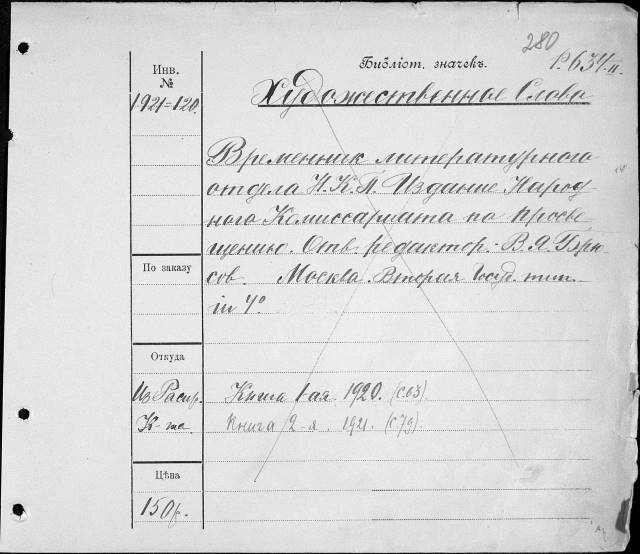 280
Библіот. значекъ.
P.634-II.
Инв.
№
1921=120.
Художественное Слово
Временник литературного
отдела Н.К.П. Издание Народ-
ного Комиссариата по просве-
щению. Отв. редактор: В.Я. Брю-
сов. Москва. Вторая Госуд. тип.
in 4°
По заказу
Откуда
Из Распр.
К-та.
Книга 1-ая. 1920. (С63).
Книга 2-я. 1921. (С79).
Цѣна
150р.